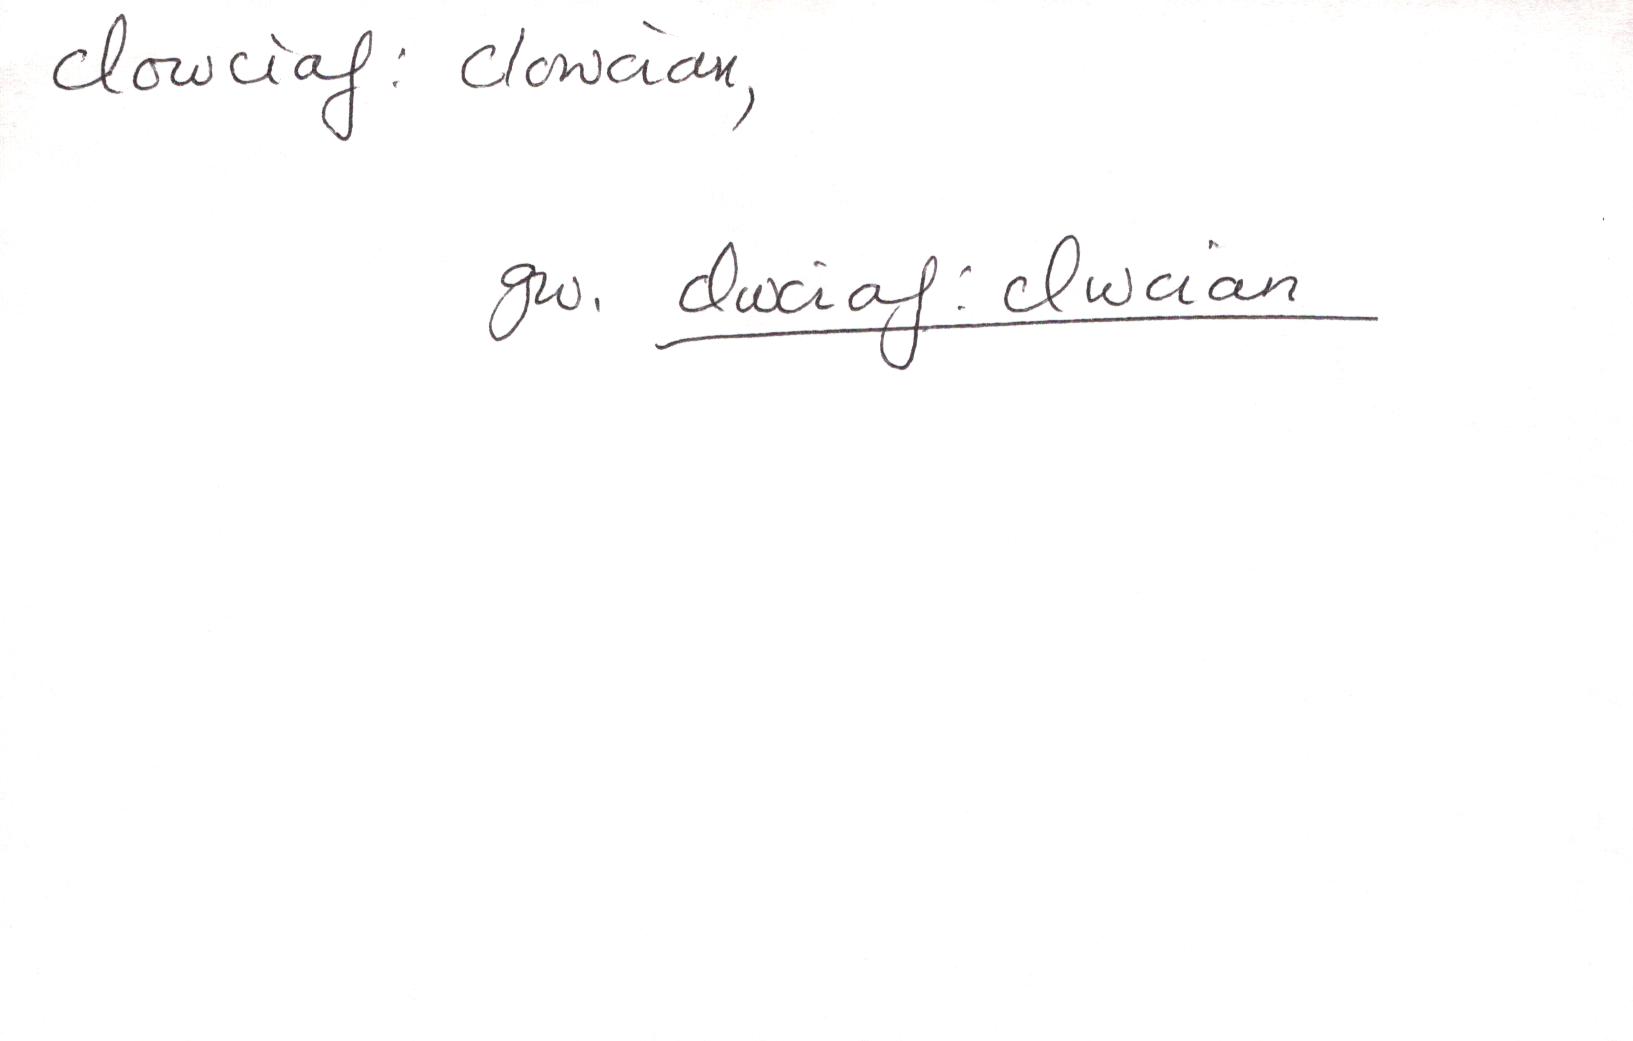 clowciaf: clowcian,
gw. clwciaf: clwcian